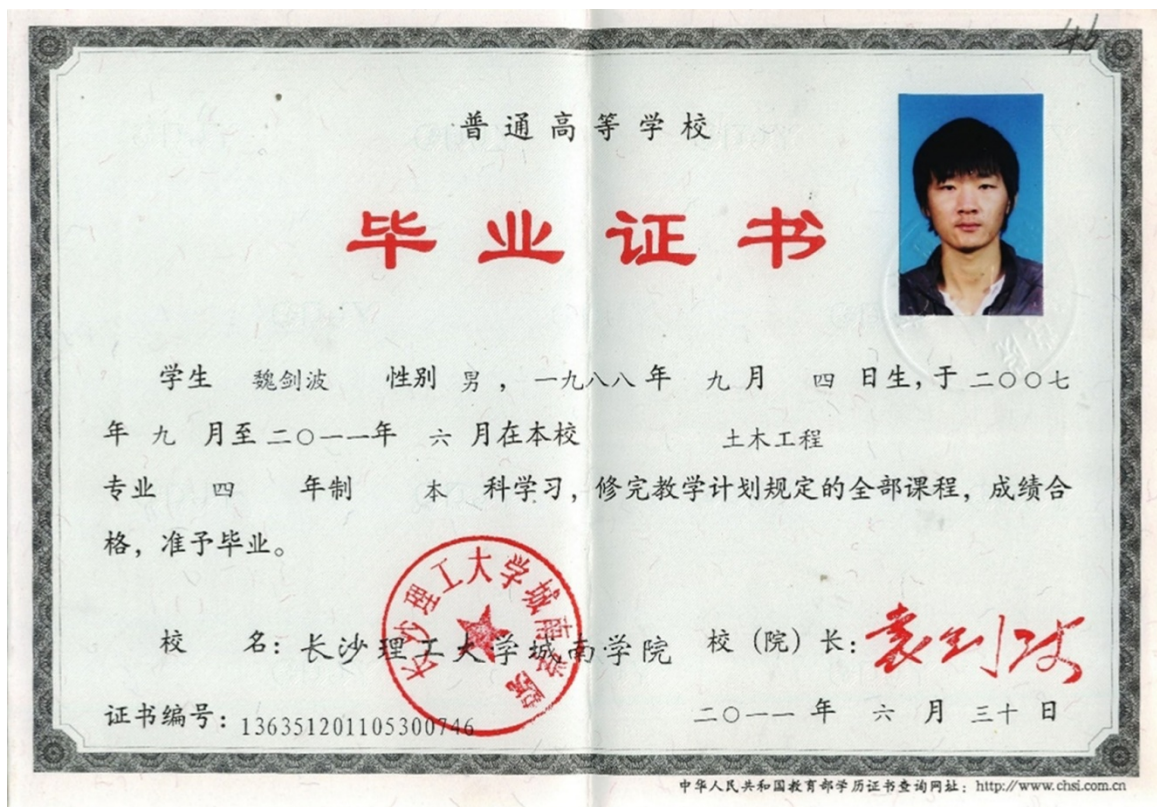 普通高等学校
毕业证书
学生 魏剑波 性别 男，一九八八年 九月 四日生，于二〇〇七
年九月至二〇一一年 六月在本校 土木工程
专业 四 年制 本 科学习，修完教学计划规定的全部课程，成绩合
格，准予毕业。
长沙理工大学城南学院
校 名：长沙理工大学城南学院 校（院）长：
证书编号：136351201105300746 二〇一一年 六月三十日
中华人民共和国教育部学历证书查询网址：http://www.chsi.com.cn